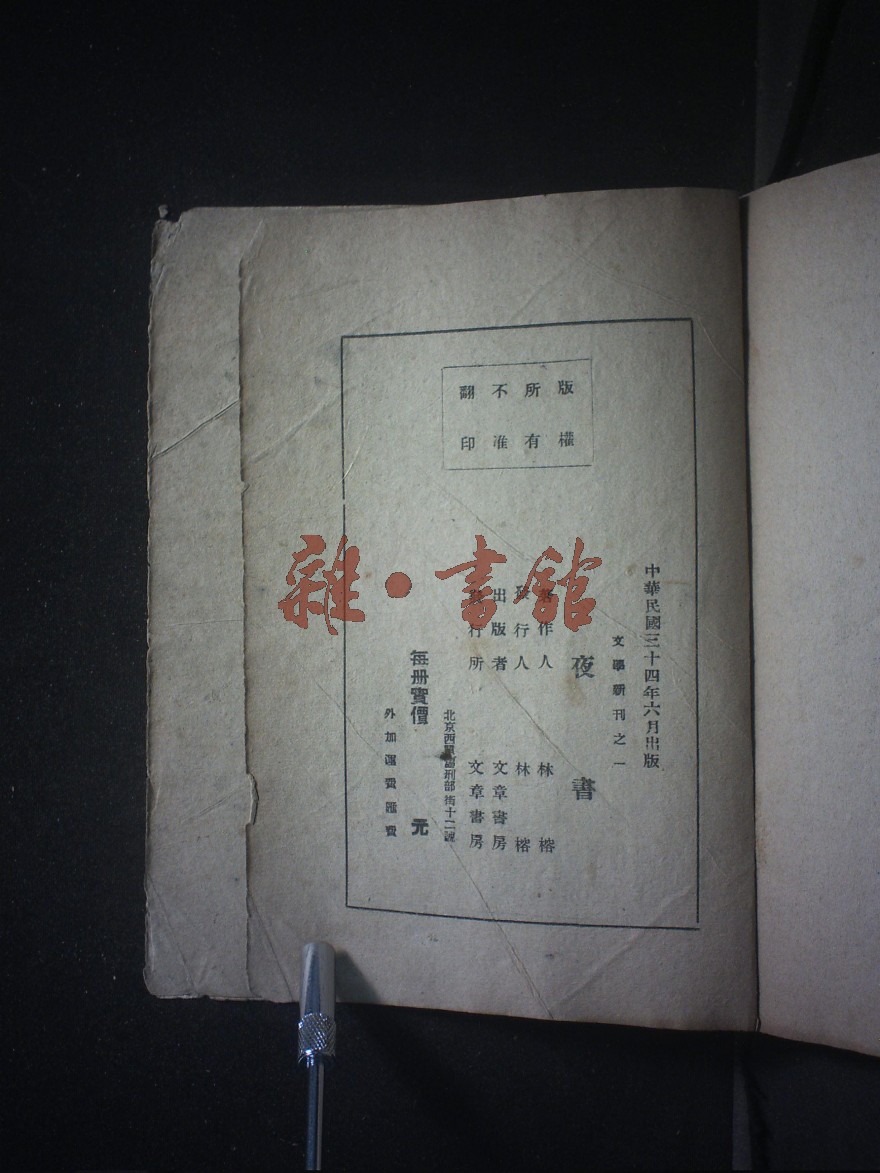 版權
所有
不准
翻印
中華民國三十四年六月出版
文學新刊之一
夜書
著作人 林榕
發行人 林榕
出版者 文章書房
發行所 文章書房
十二號
每册實價 元
外加運費匯費
雜·書館